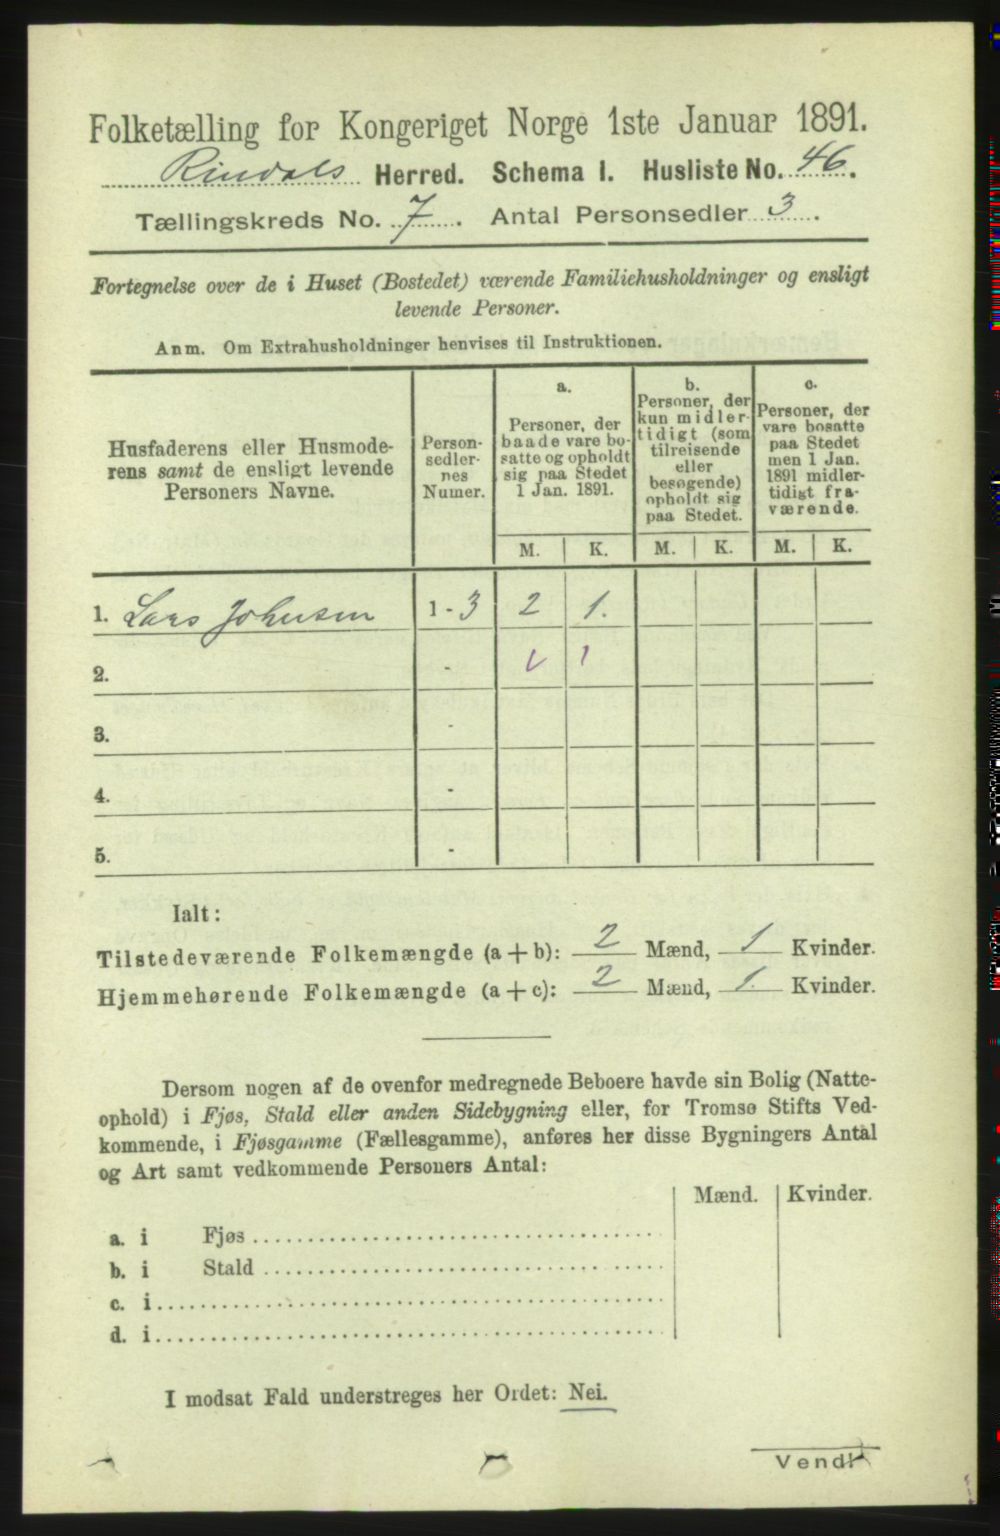 Folketælling for Kongeriget Norge 1ste Januar 1891.
Rindals Herred. Schema I. Husliste No. 46.
Tællingskreds No. 7. Antal Personsedler 3.
Fortegnelse over de i Huset (Bostedet) værende Familiehusholdninger og ensligt
levende Personer.
Anm. Om Extrahusholdninger henvises til Instruktionen.
Husfaderens eller Husmode-
rens samt de ensligt levende
Personers Navne.
Person-
sedler-
nes
Numer.
a.
Personer, der
baade vare bo-
satte og opholdt
sig paa Stedet
1 Jan. 1891.
b.
Personer, der
kun midler-
tidigt (som
tilreisende
eller
besøgende)
opholdt sig
paa Stedet.
c.
Personer, der
vare bosatte
paa Stedet
men 1 Jan.
1891 midler-
tidigt fra-
værende.
M. K. M. K. M. K.
1. Lars Johnsen 1 - 3 2 1.
2. -
3. -
4. -
5. -
Ialt:
Tilstedeværende Folkemængde (a+b): 2 Mænd, 1 Kvinder.
Hjemmehørende Folkemængde (a+c): 2 Mænd, 1. Kvinder.
Dersom nogen af de ovenfor medregnede Beboere havde sin Bolig (Natte-
ophold) i Fjøs, Stald eller anden Sidebygning eller, for Tromsø Stifts Ved-
kommende, i Fjøsgamme (Fællesgamme), anføres her disse Bygningers Antal
og Art samt vedkommende Personers Antal:
Mænd. Kvinder.
a. i Fjøs
b. i Stald
c. i
d. i
I modsat Fald understreges her Ordet: Nei.
Vend!